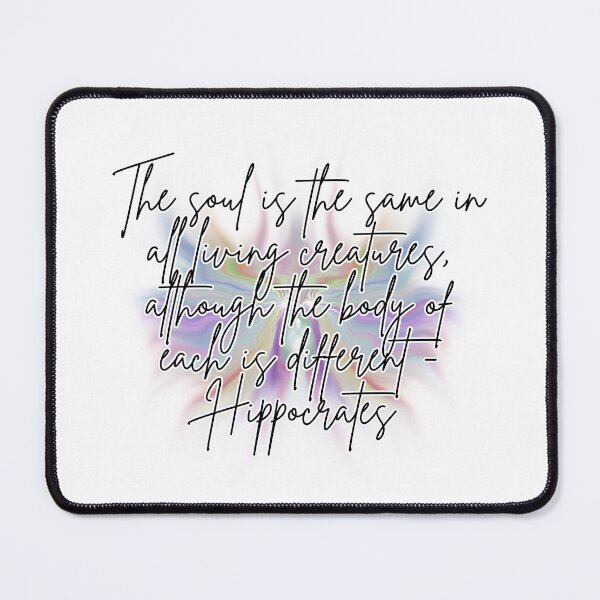 The soul is the same in
all living creatures,
although the body of
each is different -
Hippocrates